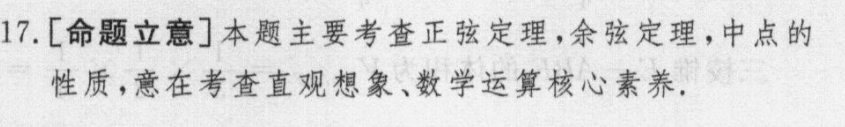 17.[命题立意]本题主要考查正弦定理,余弦定理,中点的
性质,意在考查直观想象、数学运算核心素养.